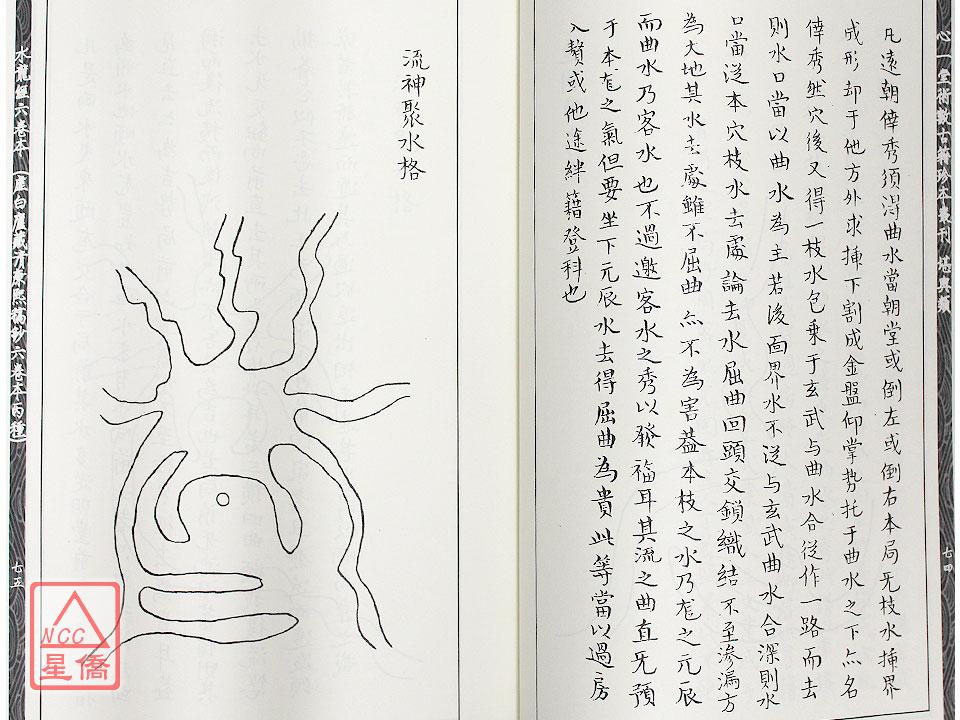 心一堂術數古籍珍本叢刊 堪輿類
七四
凡遠朝倖秀須淂曲水當朝堂或倒左或倒右本局旡枝水揷界
成形却于他方外求揷下割成金盤仰掌势托于曲水之下亦名
倖秀然穴後又得一枝水包乗于玄武与曲水合従作一路而去
則水口當以曲水為主若後面界水不従与玄武曲水合深則水
口當従本穴枝水去處論去水屈曲回頭交鎖織結不至滲漏方
為大地其水去處雖不屈曲亦不為害葢本枝之水乃龙之元辰
而曲水乃客水也不過邀客水之秀以發福耳其流之曲直旡預
于本龙之氣但要坐下元辰水去得屈曲為貴此等當以過房
入贅或他途絆籍登科也
流神聚水格
水龍經六卷本（虛白廬藏
六卷本兩種）
七五
NCC
星僑